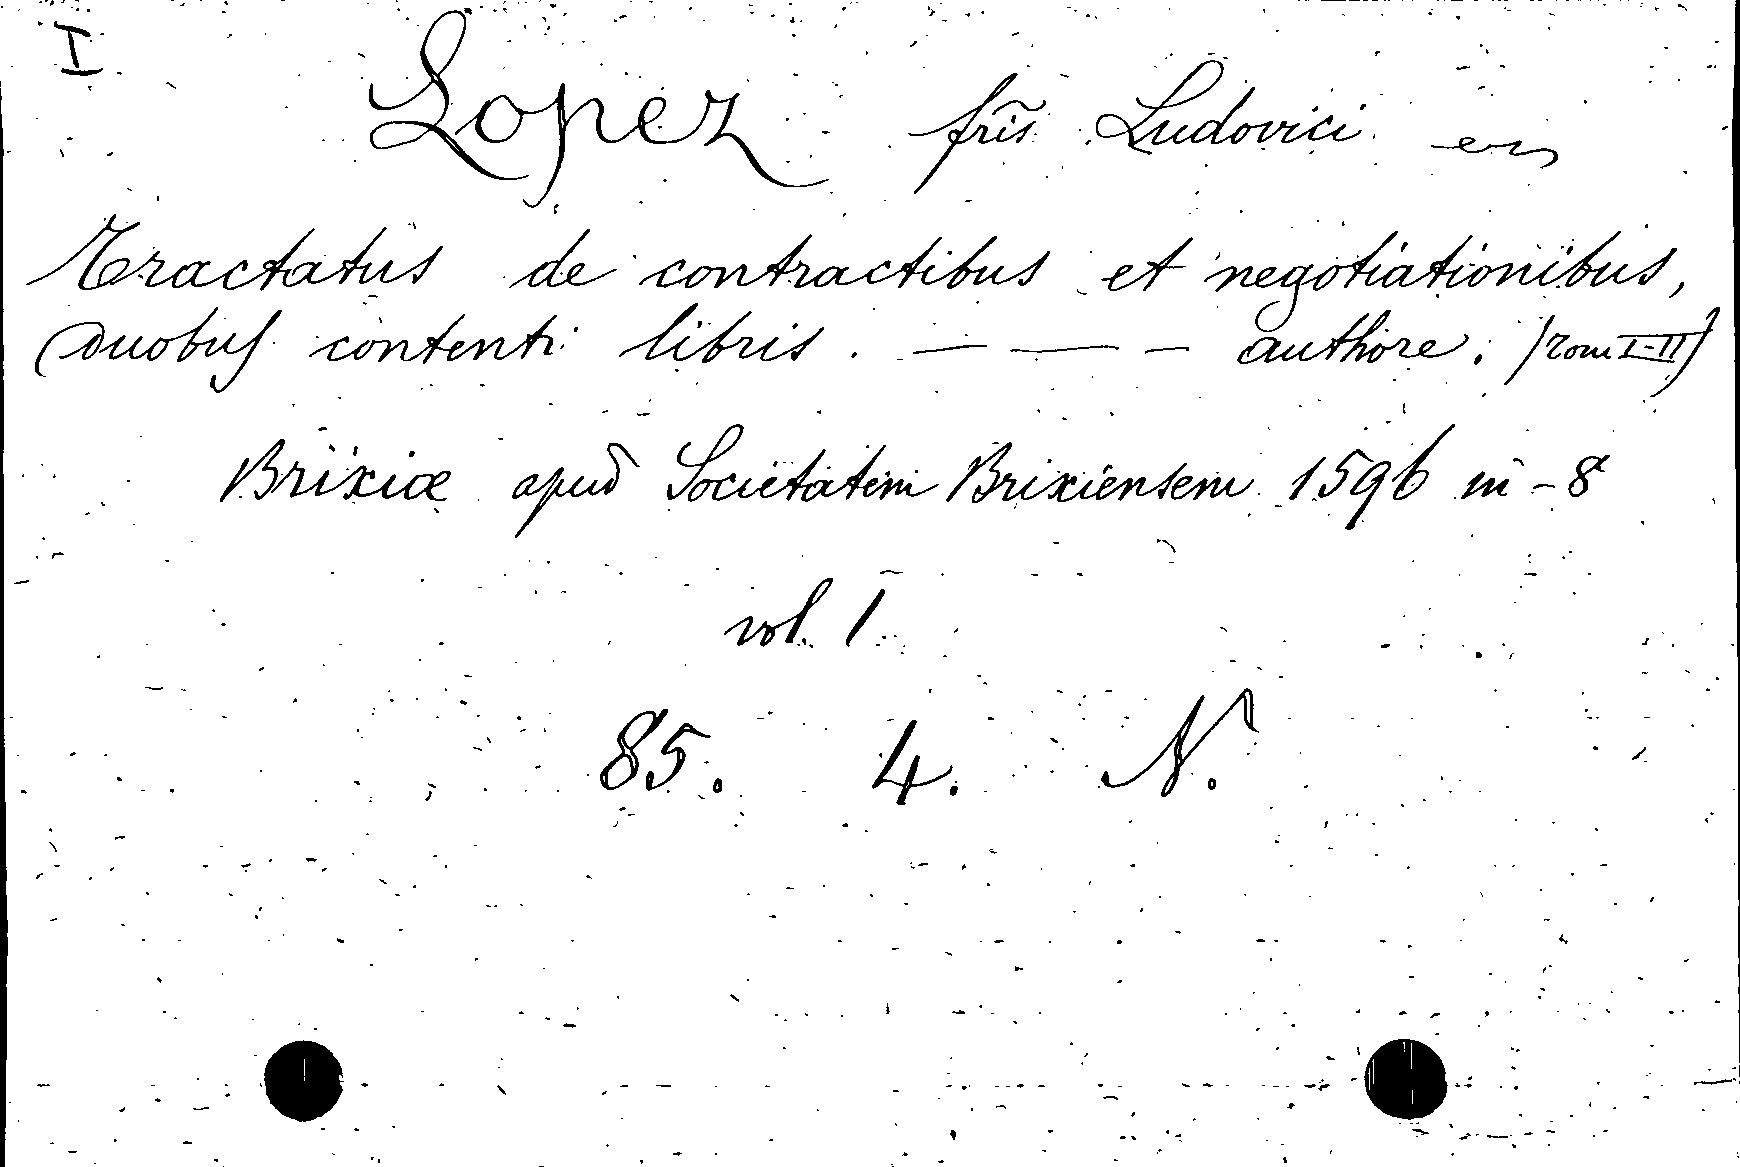 I
Lopez frīs Ludovici
Tractatus de contractibus et negotiationibus,
duobus contenti libris. — — — authore. (Tom I-II)
Brixiæ apud Societatem Brixiensem 1596 in-8
vol. 1
85. 4. N.